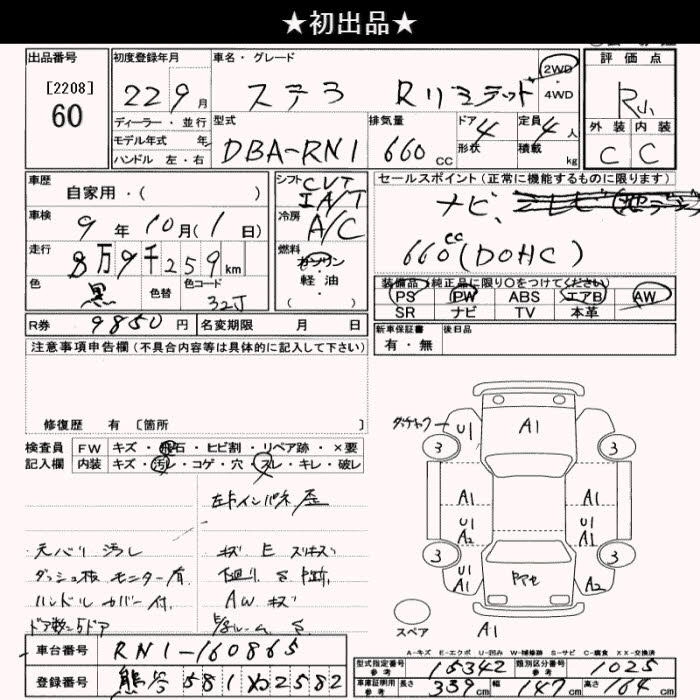 ★初出品★
出品番号 初度登録年月 車名・グレード 2WD ・ 4WD 評価点
[2208] 60 22 9月 ステラ Rリミテッド R小
ディーラー・並行 型式 排気量 ドア 4 定員 4人 外装 内装
モデル年式 年 DBA-RN1 660cc 形状 積載 kg C C
ハンドル 左・右
車歴 自家用・( ) シフト CVT IA/T セールスポイント(正常に機能するものに限ります)
車検 9年10月(1日) 冷房 A/C ナビ、
走行 8万9千259km 燃料 ガソリン 軽油 ( ) 660cc(DOHC)
色 黒 色替 色コード 32J 装備品(純正品に限り○をつけてください)
PS PW ABS エアB AW
SR ナビ TV 本革
R券 9850円 名変期限 月 日 新車保証書 有・無 後日品
注意事項申告欄(不具合内容等は具体的に記入して下さい)
修復歴 有 [箇所 ]
検査員 FW キズ・飛石・ヒビ割・リペア跡・×要
記入欄 内装 キズ・汚レ・コゲ・穴・スレ・キレ・破レ
左下インパネ
汚レ キズ E
ダッシュ板 モニター有
ハンドルカバー付 AWキズ
ドア数=5ドア
U1 A1
3 3
A1 A1
U1 A2 U1
3 3
U1 A1 A2
スペア A1
A-キズ E-エクボ U-凹み W-補修跡 S-サビ C-腐食 XX-交換済
車台番号 RN1-160865
登録番号 熊谷 581 ぬ 2582
型式指定番号 参考 15342 類別区分番号 参考 1025
車庫証明用 参考 長さ 339cm 幅 147cm 高さ 164cm